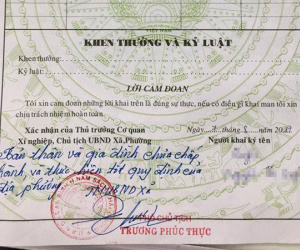 KHEN THƯỞNG VÀ KỶ LUẬT
Khen thưởng:
Kỷ luật:
LỜI CAM ĐOAN
Tôi xin cam đoan những lời khai trên là đúng sự thực, nếu có điều gì khai man tôi xin
chịu trách nhiệm hoàn toàn.
Xác nhận của Thủ trưởng Cơ quan
Xí nghiệp, Chủ tịch UBND Xã, Phường
Ngày tháng
Người khai ký tên
Bản thân và gia đình chưa chấp
hành, và thực hiện tốt quy định của
địa phương
TM UBND Xã
CHỦ TỊCH
TRƯƠNG PHÚC THỰC